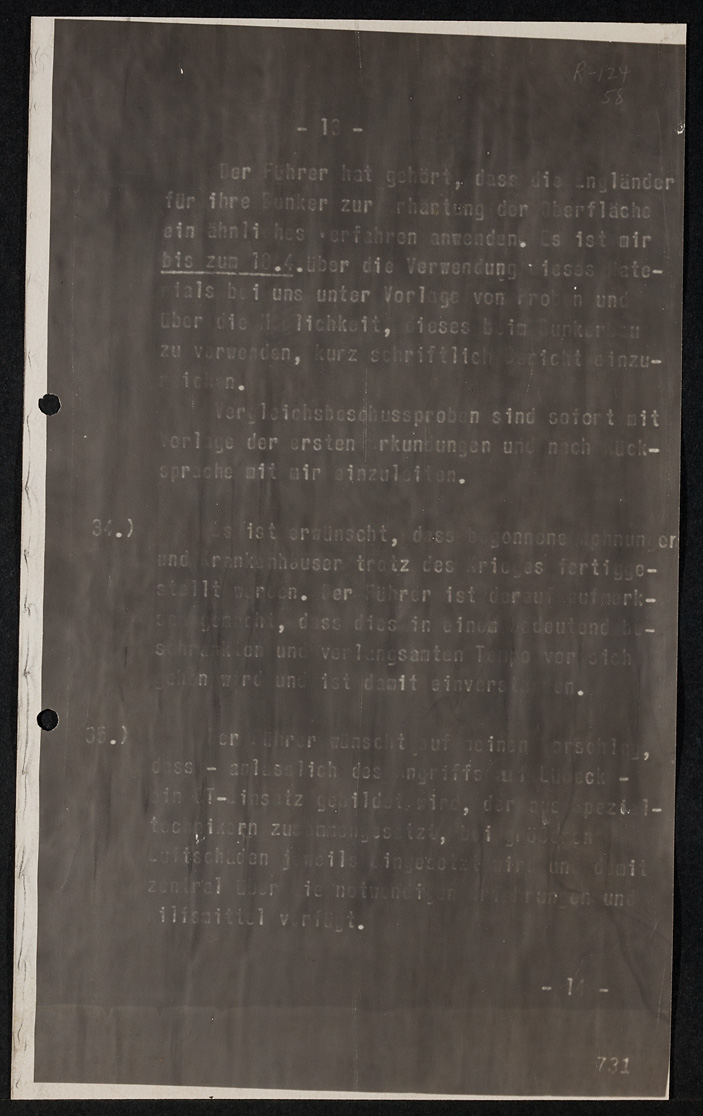 R-124
58
- 13 -
Der Führer hat gehört, dass die Engländer
für ihre Bunker zur Erhärtung der Oberfläche
ein ähnliches Verfahren anwenden. Es ist mir
bis zum 19.4. über die Verwendung dieses Mate-
rials bei uns unter Vorlage von Proben und
über die Möglichkeit, dieses beim Bunkerbau
zu verwenden, kurz schriftlich Bericht einzu-
reichen.
Vergleichsbeschussproben sind sofort mit
Vorlage der ersten Erkundungen und nach Rück-
sprache mit mir einzuleiten.
34.) Es ist erwünscht, dass begonnene Wohnungen
und Krankenhäuser trotz des Krieges fertigge-
stellt werden. Der Führer ist darauf aufmerk-
sam gemacht, dass dies in einem bedeutend be-
schränkten und verlangsamten Tempo vor sich
gehen wird und ist damit einverstanden.
35.) Der Führer wünscht auf meinen Vorschlag,
dass - anlässlich des Angriffs auf Lübeck -
ein OT-Einsatz gebildet wird, der aus Spezial-
technikern zusammengesetzt, bei grösseren
Luftschäden jeweils eingesetzt wird und damit
zentral über die notwendigen Erfahrungen und
Hilfsmittel verfügt.
- 14 -
731